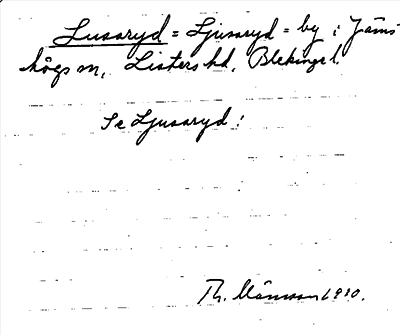 Lusaryd = Ljusaryd = by i Jäms
högs sn, Listers hd, Blekinge l.
Se Ljusaryd!
Th. Månsson 1910.